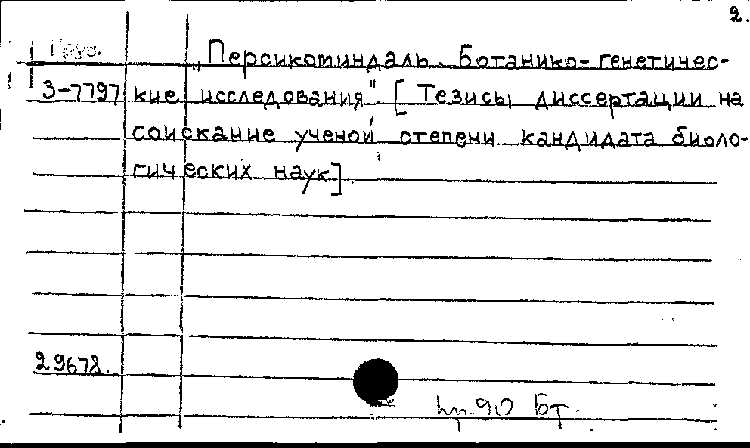 2.
Груз.
„Персикоминдаль. Ботанико-генетичес-
3-7797 кие исследования". [Тезисы диссертации на
соискание ученой степени кандидата биоло-
гических наук]
29678.
90 Бт.